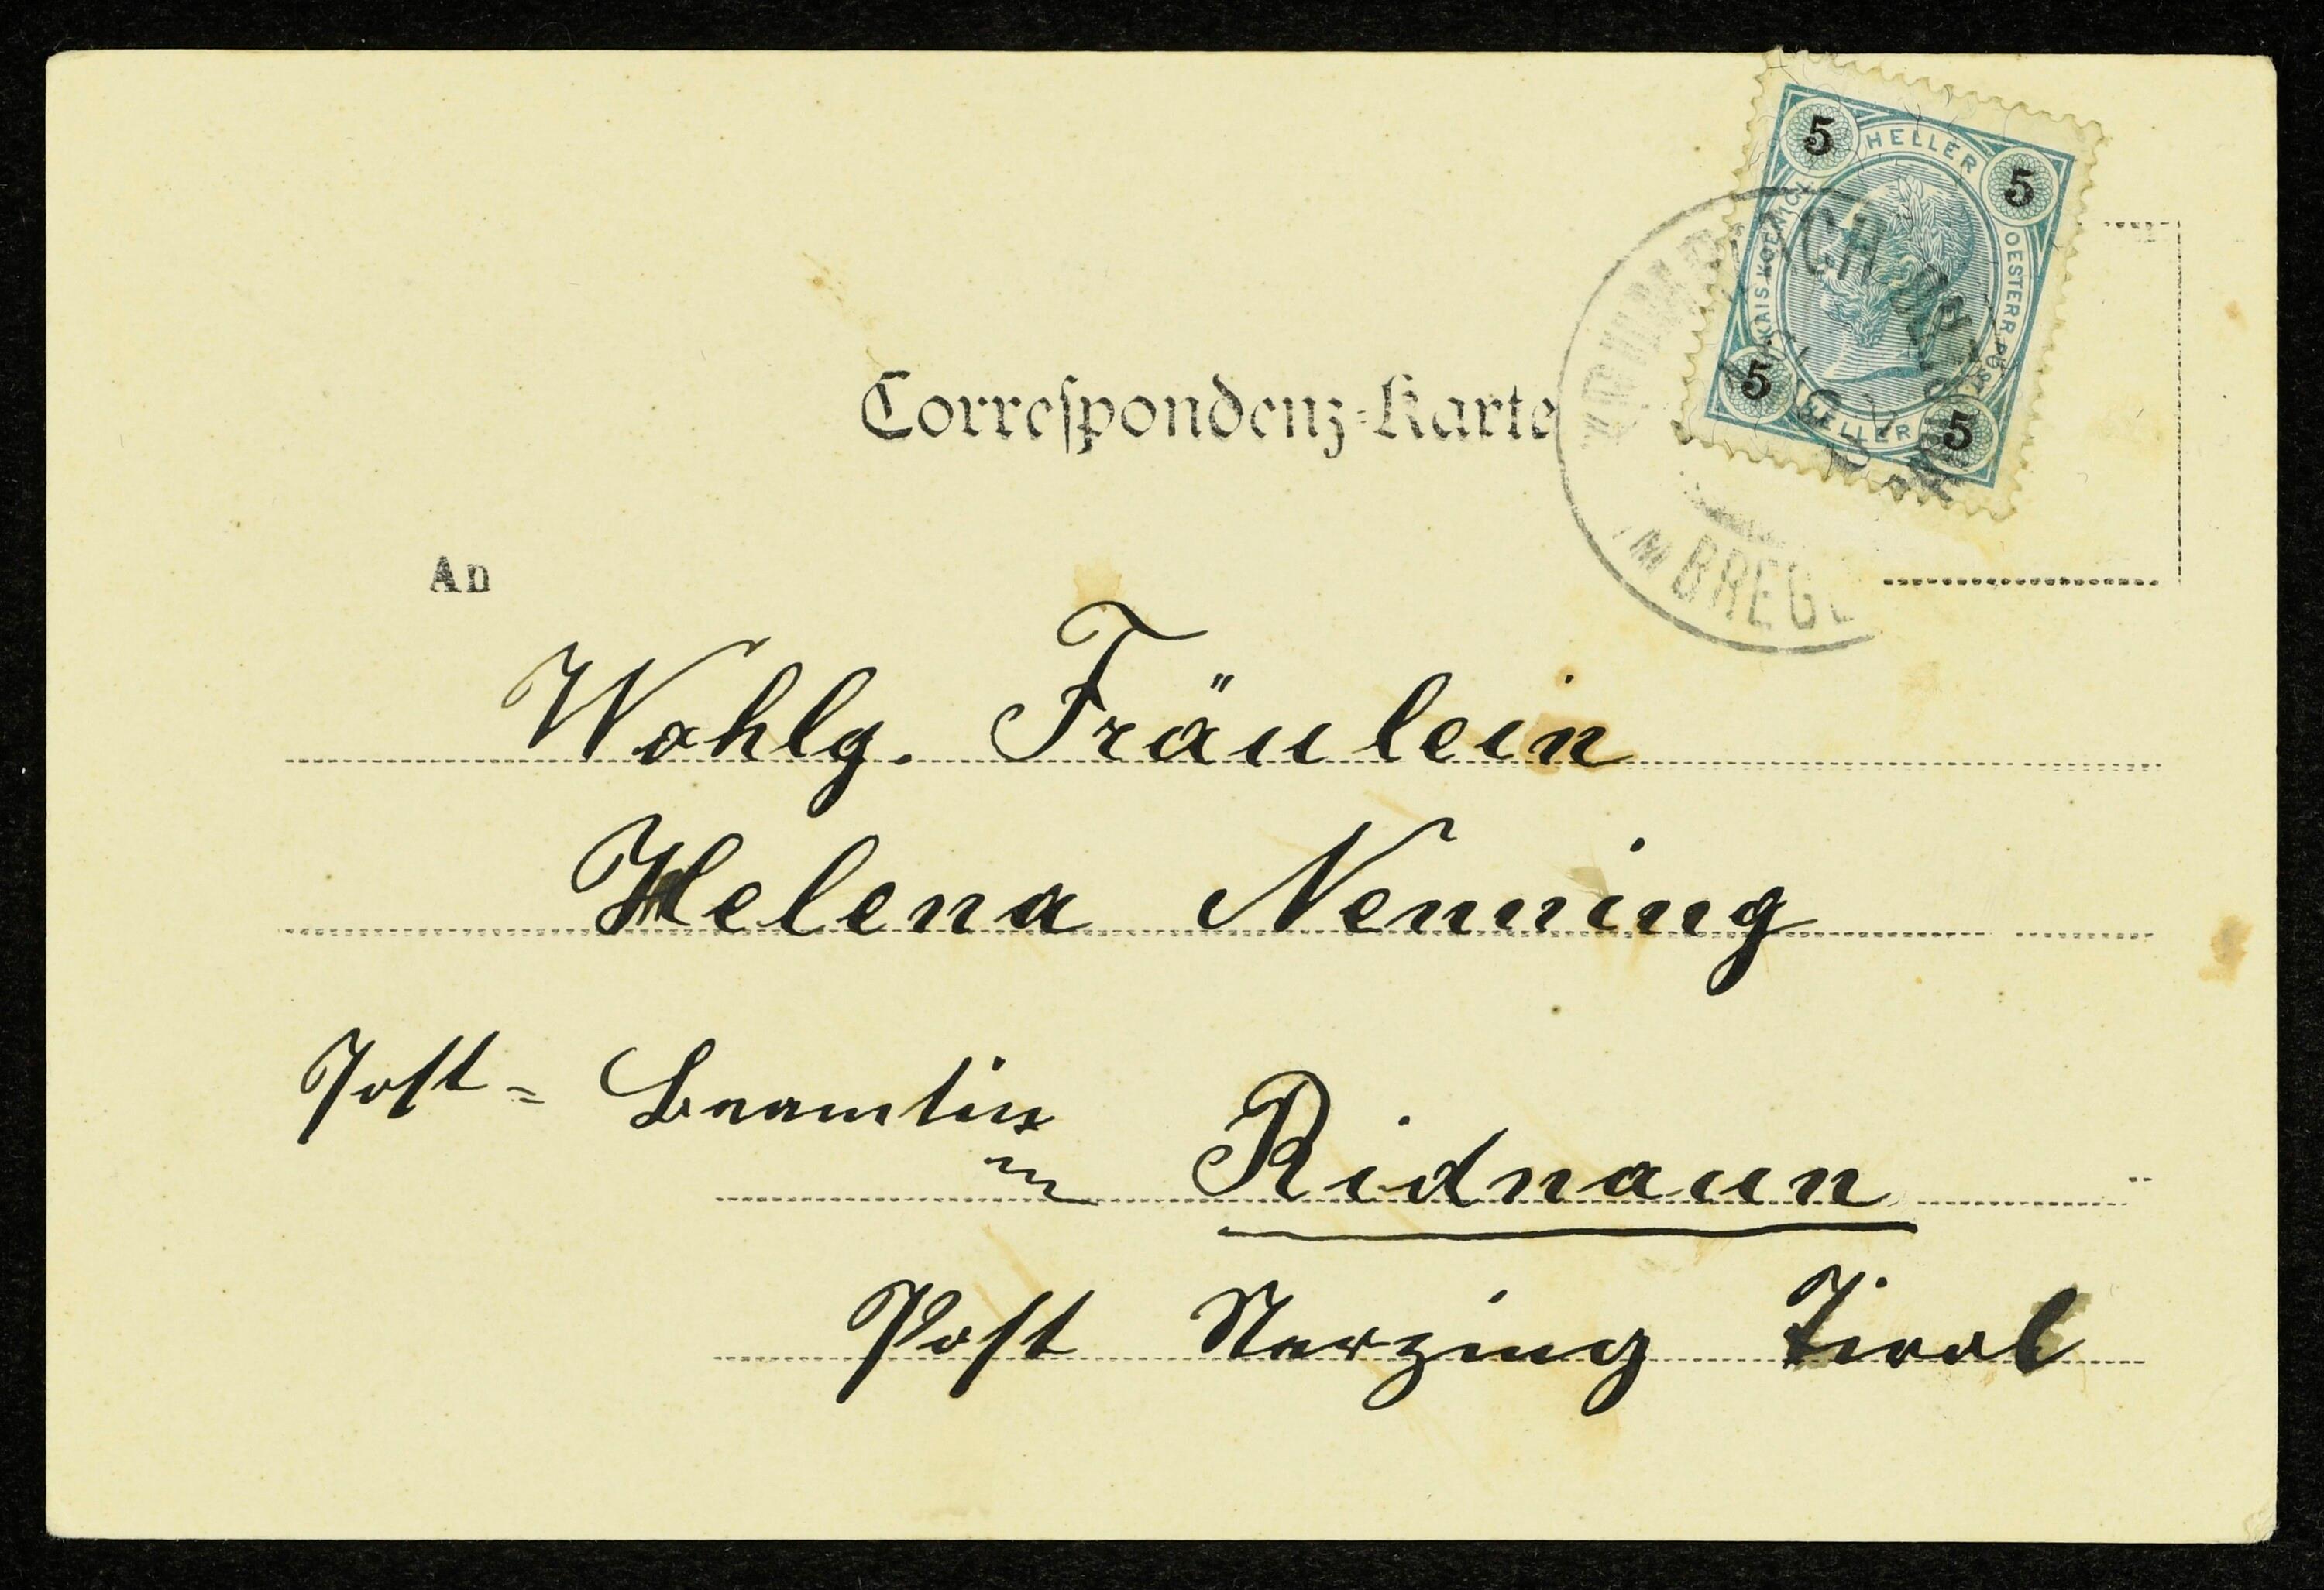 5 HELLER 5
KAIS. KOENIGL. OESTERR. POST
5 HELLER 5
Correſpondenz-Karte
IM BREG
An
Wohlg. Fräulein
Helena Nenning
Post = Beamtin
in Ridnaun
Post Sterzing Tirol